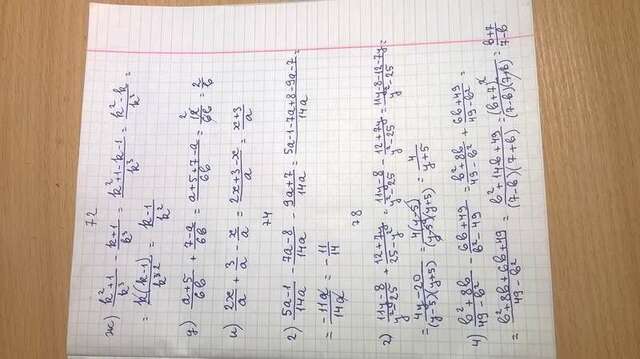 72
ж) (k²+1)/k³ - (k+1)/k³ = (k²+1-k-1)/k³ = (k²-k)/k³ =
= k(k-1)/k³² = (k-1)/k²
у) (a+5)/6b + (7-a)/6b = (a+5+7-a)/6b = 12²/6b = 2/b
и) 2x/a + 3/a - x/a = (2x+3-x)/a = (x+3)/a
74
2) (5a-1)/14a - (7a-8)/14a - (9a+7)/14a = (5a-1-7a+8-9a-7)/14a =
= -11a/14a = -11/14
78
2) (11y-8)/(y²-25) + (12+7y)/(25-y²) = (11y-8)/(y²-25) - (12+7y)/(y²-25) = (11y-8-12-7y)/(y²-25) =
= (4y-20)/(y-5)(y+5) = 4(y-5)/(y-5)(y+5) = 4/(y+5)
4) (b²+8b)/(49-b²) - (6b+49)/(b²-49) = (b²+8b)/(49-b²) + (6b+49)/(49-b²) =
= (b²+8b+6b+49)/(49-b²) = (b²+14b+49)/(7-b)(7+b) = (b+7)²/(7-b)(7+b) = (b+7)/(7-b)